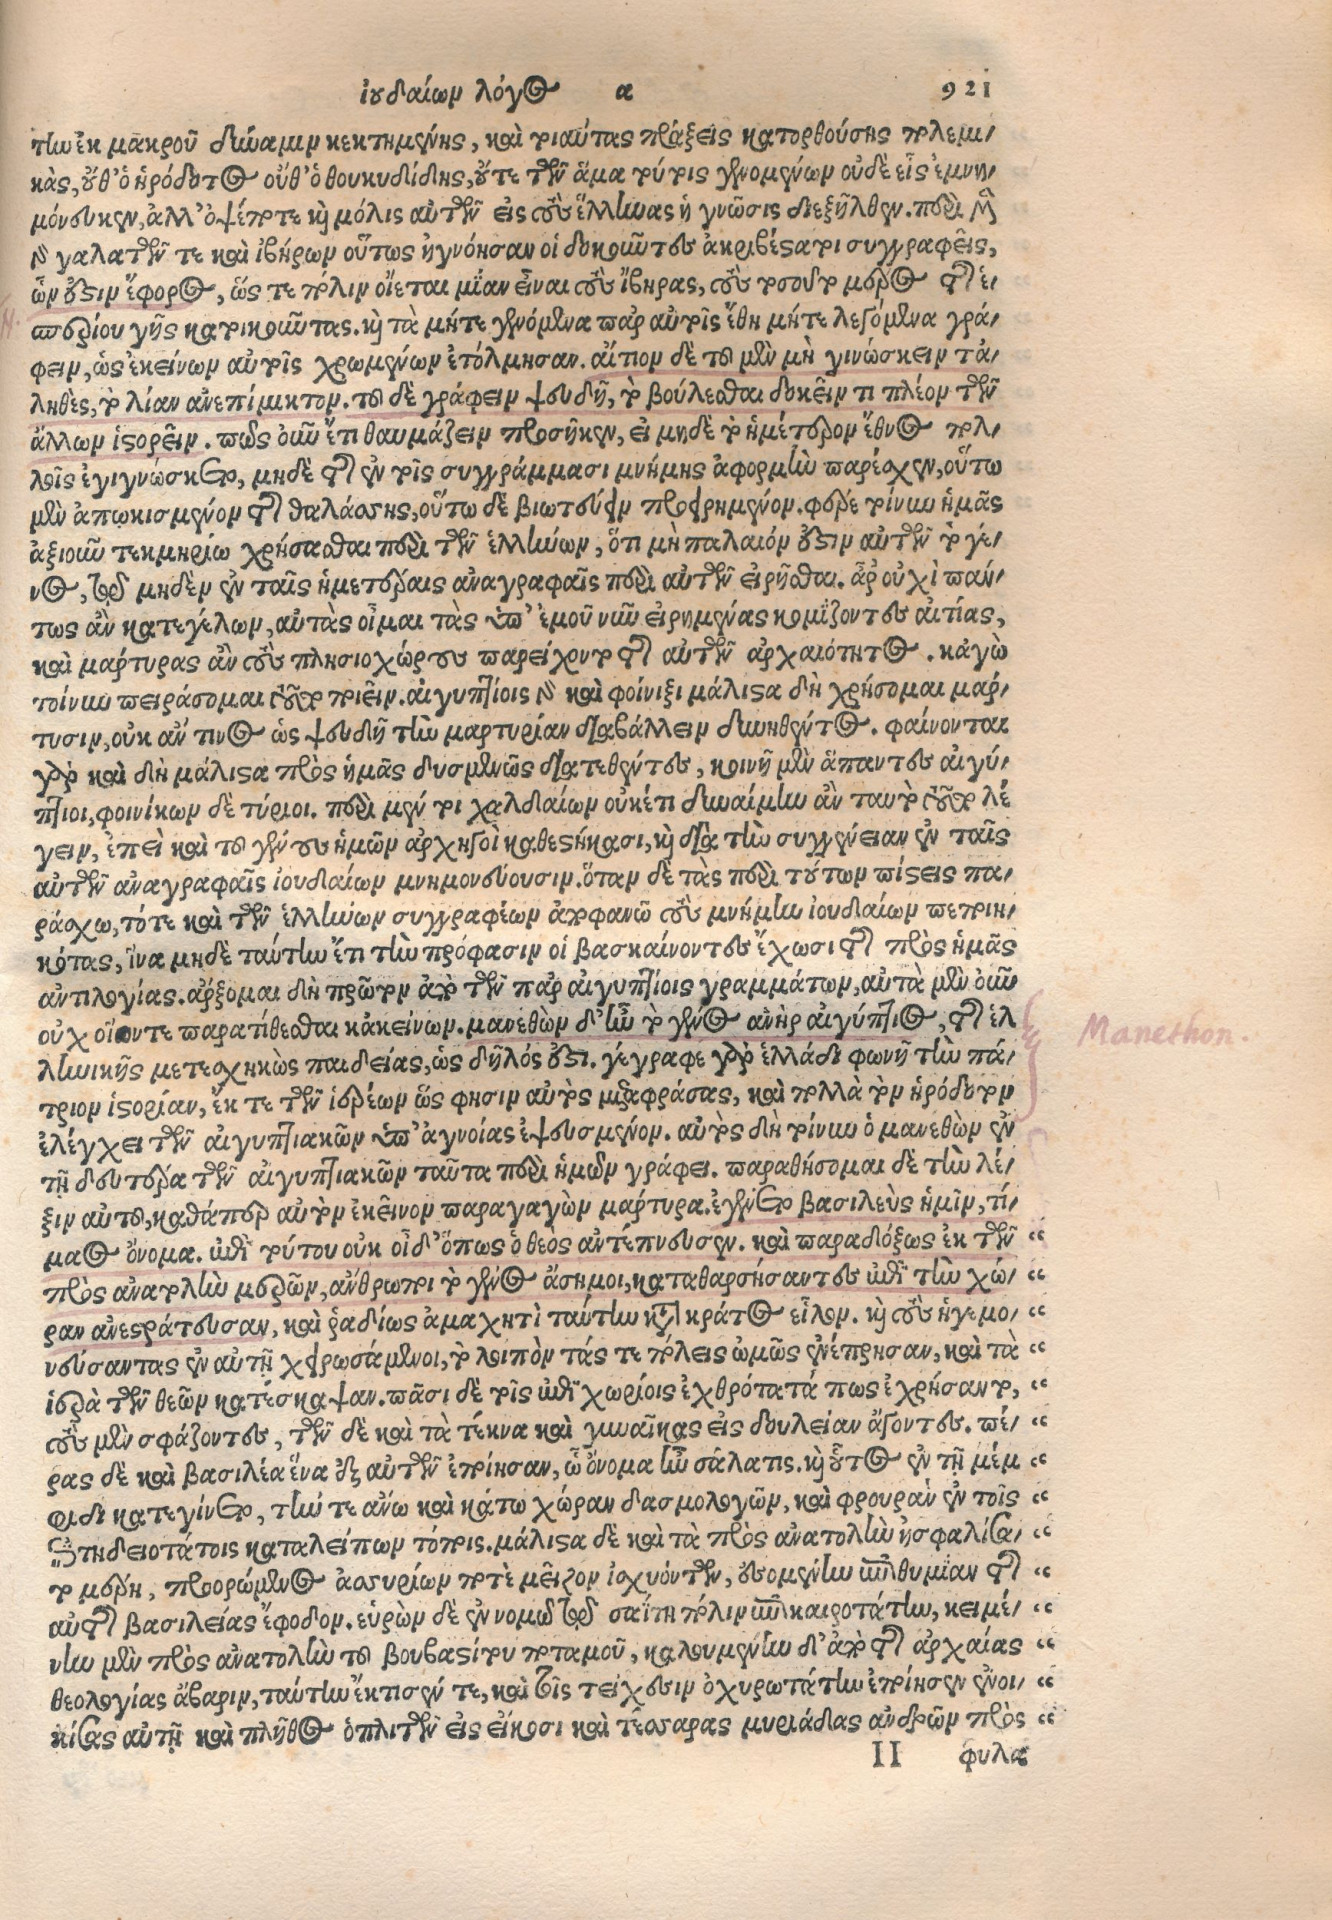 ἰουδαίων λόγος α 921
τὴν ἐκ μακροῦ δύναμιν κεκτημένης, καὶ τοιαύτας πράξεις κατορθούσης πολεμι-
κὰς, οὔθ' ὁ ἡρόδοτος οὔθ' ὁ θουκυδίδης, οὔτε τῶν ἅμα τούτοις γενομένων οὐδὲ εἷς ἐμνη-
μόνευκεν, ἀλλ' ὀψέποτε καὶ μόλις αὐτῶν εἰς τοὺς ἕλληνας ἡ γνῶσις διεξῆλθεν. περὶ μὲν
γὰρ γαλατῶν τε καὶ ἰβήρων οὕτως ἠγνόησαν οἱ δοκοῦντες ἀκριβέστατοι συγγραφεῖς,
ὧν ἐστιν ἔφορος, ὥς τε πόλιν οἴεται μίαν εἶναι τοὺς ἴβηρας, τοὺς τοσοῦτο μέρος τῆς ἑ-
σπερίου γῆς κατοικοῦντας. καὶ τὰ μήτε γενόμενα παρ αὐτοῖς ἔθη μήτε λεγόμενα γρά-
φειν, ὡς ἐκείνων αὐτοῖς χρωμένων ἐτόλμησαν. αἴτιον δὲ τοῦ μὲν μὴ γινώσκειν τἀ-
ληθὲς, τὸ λίαν ἀνεπίμικτον. τοῦ δὲ γράφειν ψευδῆ, τὸ βούλεσθαι δοκεῖν τι πλέον τῶν
ἄλλων ἱστορεῖν. πῶς οὖν ἔτι θαυμάζειν προσῆκεν, εἰ μηδὲ τὸ ἡμέτερον ἔθνος πολ-
λοῖς ἐγιγνώσκετο, μηδὲ τῆς ἐν τοῖς συγγράμμασι μνήμης ἀφορμὴν παρέσχεν, οὕτω
μὲν ἀπωκισμένον τῆς θαλάσσης, οὕτω δὲ βιωτεύειν προειρημένον. φέρε τοίνυν ἡμᾶς
ἀξιοῦν τεκμηρίῳ χρήσασθαι περὶ τῶν ἑλλήνων, ὅτι μὴ παλαιόν ἐστιν αὐτῶν τὸ γέ-
νος, τῷ μηδὲν ἐν ταῖς ἡμετέραις ἀναγραφαῖς περὶ αὐτῶν εἰρῆσθαι. ἆρ οὐχὶ πάν-
τως ἂν κατεγέλων, αὐτὰς οἶμαι τὰς ὑπ' ἐμοῦ νῦν εἰρημένας κομίζοντες αἰτίας,
καὶ μάρτυρας ἂν τοὺς πλησιοχώρους παρείχοντο τῆς αὐτῶν ἀρχαιότητος. κἀγὼ
τοίνυν πειράσομαι τοῦτο ποιεῖν. αἰγυπτίοις γὰρ καὶ φοίνιξι μάλιστα δὴ χρήσομαι μάρ-
τυσιν, οὐκ ἄν τινος ὡς ψευδῆ τὴν μαρτυρίαν διαβάλλειν δυνηθέντος. φαίνονται
γὰρ καὶ δὴ μάλιστα πρὸς ἡμᾶς δυσμενῶς διατεθέντες, κοινῇ μὲν ἅπαντες αἰγύ-
πτιοι, φοινίκων δὲ τύριοι. περὶ μέν τοι χαλδαίων οὐκέτι δυναίμην ἂν ταυτὸ τοῦτο λέ
γειν, ἐπεὶ καὶ τοῦ γένους ἡμῶν ἀρχηγοὶ καθεστήκασι, καὶ διὰ τὴν συγγένειαν ἐν ταῖς
αὐτῶν ἀναγραφαῖς ἰουδαίων μνημονεύουσιν. ὅταν δὲ τὰς περὶ τούτων πίστεις πα-
ράσχω, τότε καὶ τῶν ἑλλήνων συγγραφέων ἀποφανῶ τοὺς μνήμην ἰουδαίων πεποιη-
κότας, ἵνα μηδὲ ταύτην ἔτι τὴν πρόφασιν οἱ βασκαίνοντες ἔχωσι τῆς πρὸς ἡμᾶς
ἀντιλογίας. ἄρξομαι δὴ πρῶτον ἀπὸ τῶν παρ αἰγυπτίοις γραμμάτων, αὐτὰ μὲν οὖν
οὐχ οἷόντε παρατίθεσθαι κἀκείνων. μανεθὼν δ' ἦν τὸ γένος ἀνὴρ αἰγύπτιος, τῆς ἑλ
ληνικῆς μετεσχηκὼς παιδείας, ὡς δῆλός ἐστι. γέγραφε γὰρ ἑλλάδι φωνῇ τὴν πά-
τριον ἱστορίαν, ἔκ τε τῶν ἱερέων ὥς φησιν αὐτὸς μεταφράσας, καὶ πολλὰ τὸν ἡρόδοτον
ἐλέγχει τῶν αἰγυπτιακῶν ὑπ' ἀγνοίας ἐψευσμένον. αὐτὸς δὴ τοίνυν ὁ μανεθὼν ἐν
τῇ δευτέρᾳ τῶν αἰγυπτιακῶν ταῦτα περὶ ἡμῶν γράφει. παραθήσομαι δὲ τὴν λέ-
ξιν αὐτοῦ, καθάπερ αὐτὸν ἐκεῖνον παραγαγὼν μάρτυρα. ἐγένετο βασιλεὺς ἡμῖν, τί-
μαος ὄνομα. ἐπὶ τούτου οὐκ οἶδ' ὅπως ὁ θεὸς ἀντέπνευσεν. καὶ παραδόξως ἐκ τῶν “
πρὸς ἀνατολὴν μερῶν, ἄνθρωποι τὸ γένος ἄσημοι, καταθαρσήσαντες ἐπὶ τὴν χώ- “
ραν ἀνεστράτευσαν, καὶ ῥαδίως ἀμαχητὶ ταύτην κατὰ κράτος εἷλον. καὶ τοὺς ἡγεμο- “
νεύσαντας ἐν αὐτῇ χειρωσάμενοι, τὸ λοιπὸν τάς τε πόλεις ὠμῶς ἐνέπρησαν, καὶ τὰ “
ἱερὰ τῶν θεῶν κατέσκαψαν. πᾶσι δὲ τοῖς ἐπιχωρίοις ἐχθρότατά πως ἐχρήσαντο, “
τοὺς μὲν σφάζοντες, τῶν δὲ καὶ τὰ τέκνα καὶ γυναῖκας εἰς δουλείαν ἄγοντες. πέ- “
ρας δὲ καὶ βασιλέα ἕνα ἐξ αὐτῶν ἐποίησαν, ᾧ ὄνομα ἦν σάλατις. καὶ οὗτος ἐν τῇ μέμ “
φιδι κατεγίνετο, τήν τε ἄνω καὶ κάτω χώραν δασμολογῶν, καὶ φρουρὰν ἐν τοῖς “
ἐπιτηδειοτάτοις καταλείπων τόποις. μάλιστα δὲ καὶ τὰ πρὸς ἀνατολὴν ἠσφαλίσα- “
το μέρη, προορώμενος ἀσσυρίων ποτὲ μεῖζον ἰσχυόντων, ἐσομένην ἐπιθυμίαν τῆς “
αὐτῆς βασιλείας ἔφοδον. εὑρὼν δὲ ἐν νομῷ τῷ σαΐτῃ πόλιν ἐπικαιροτάτην, κειμέ- “
νην μὲν πρὸς ἀνατολὴν τοῦ βουβαστίτου ποταμοῦ, καλουμένην δ' ἀπὸ τῆς ἀρχαίας “
θεολογίας ἄβαριν, ταύτην ἔκτισέν τε, καὶ τοῖς τείχεσιν ὀχυρωτάτην ἐποίησεν ἐνοι- “
κίσας αὐτῇ καὶ πλῆθος ὁπλιτῶν εἰς εἴκοσι καὶ τέσσαρας μυριάδας ἀνδρῶν πρὸς “
II φυλα
Manethon.